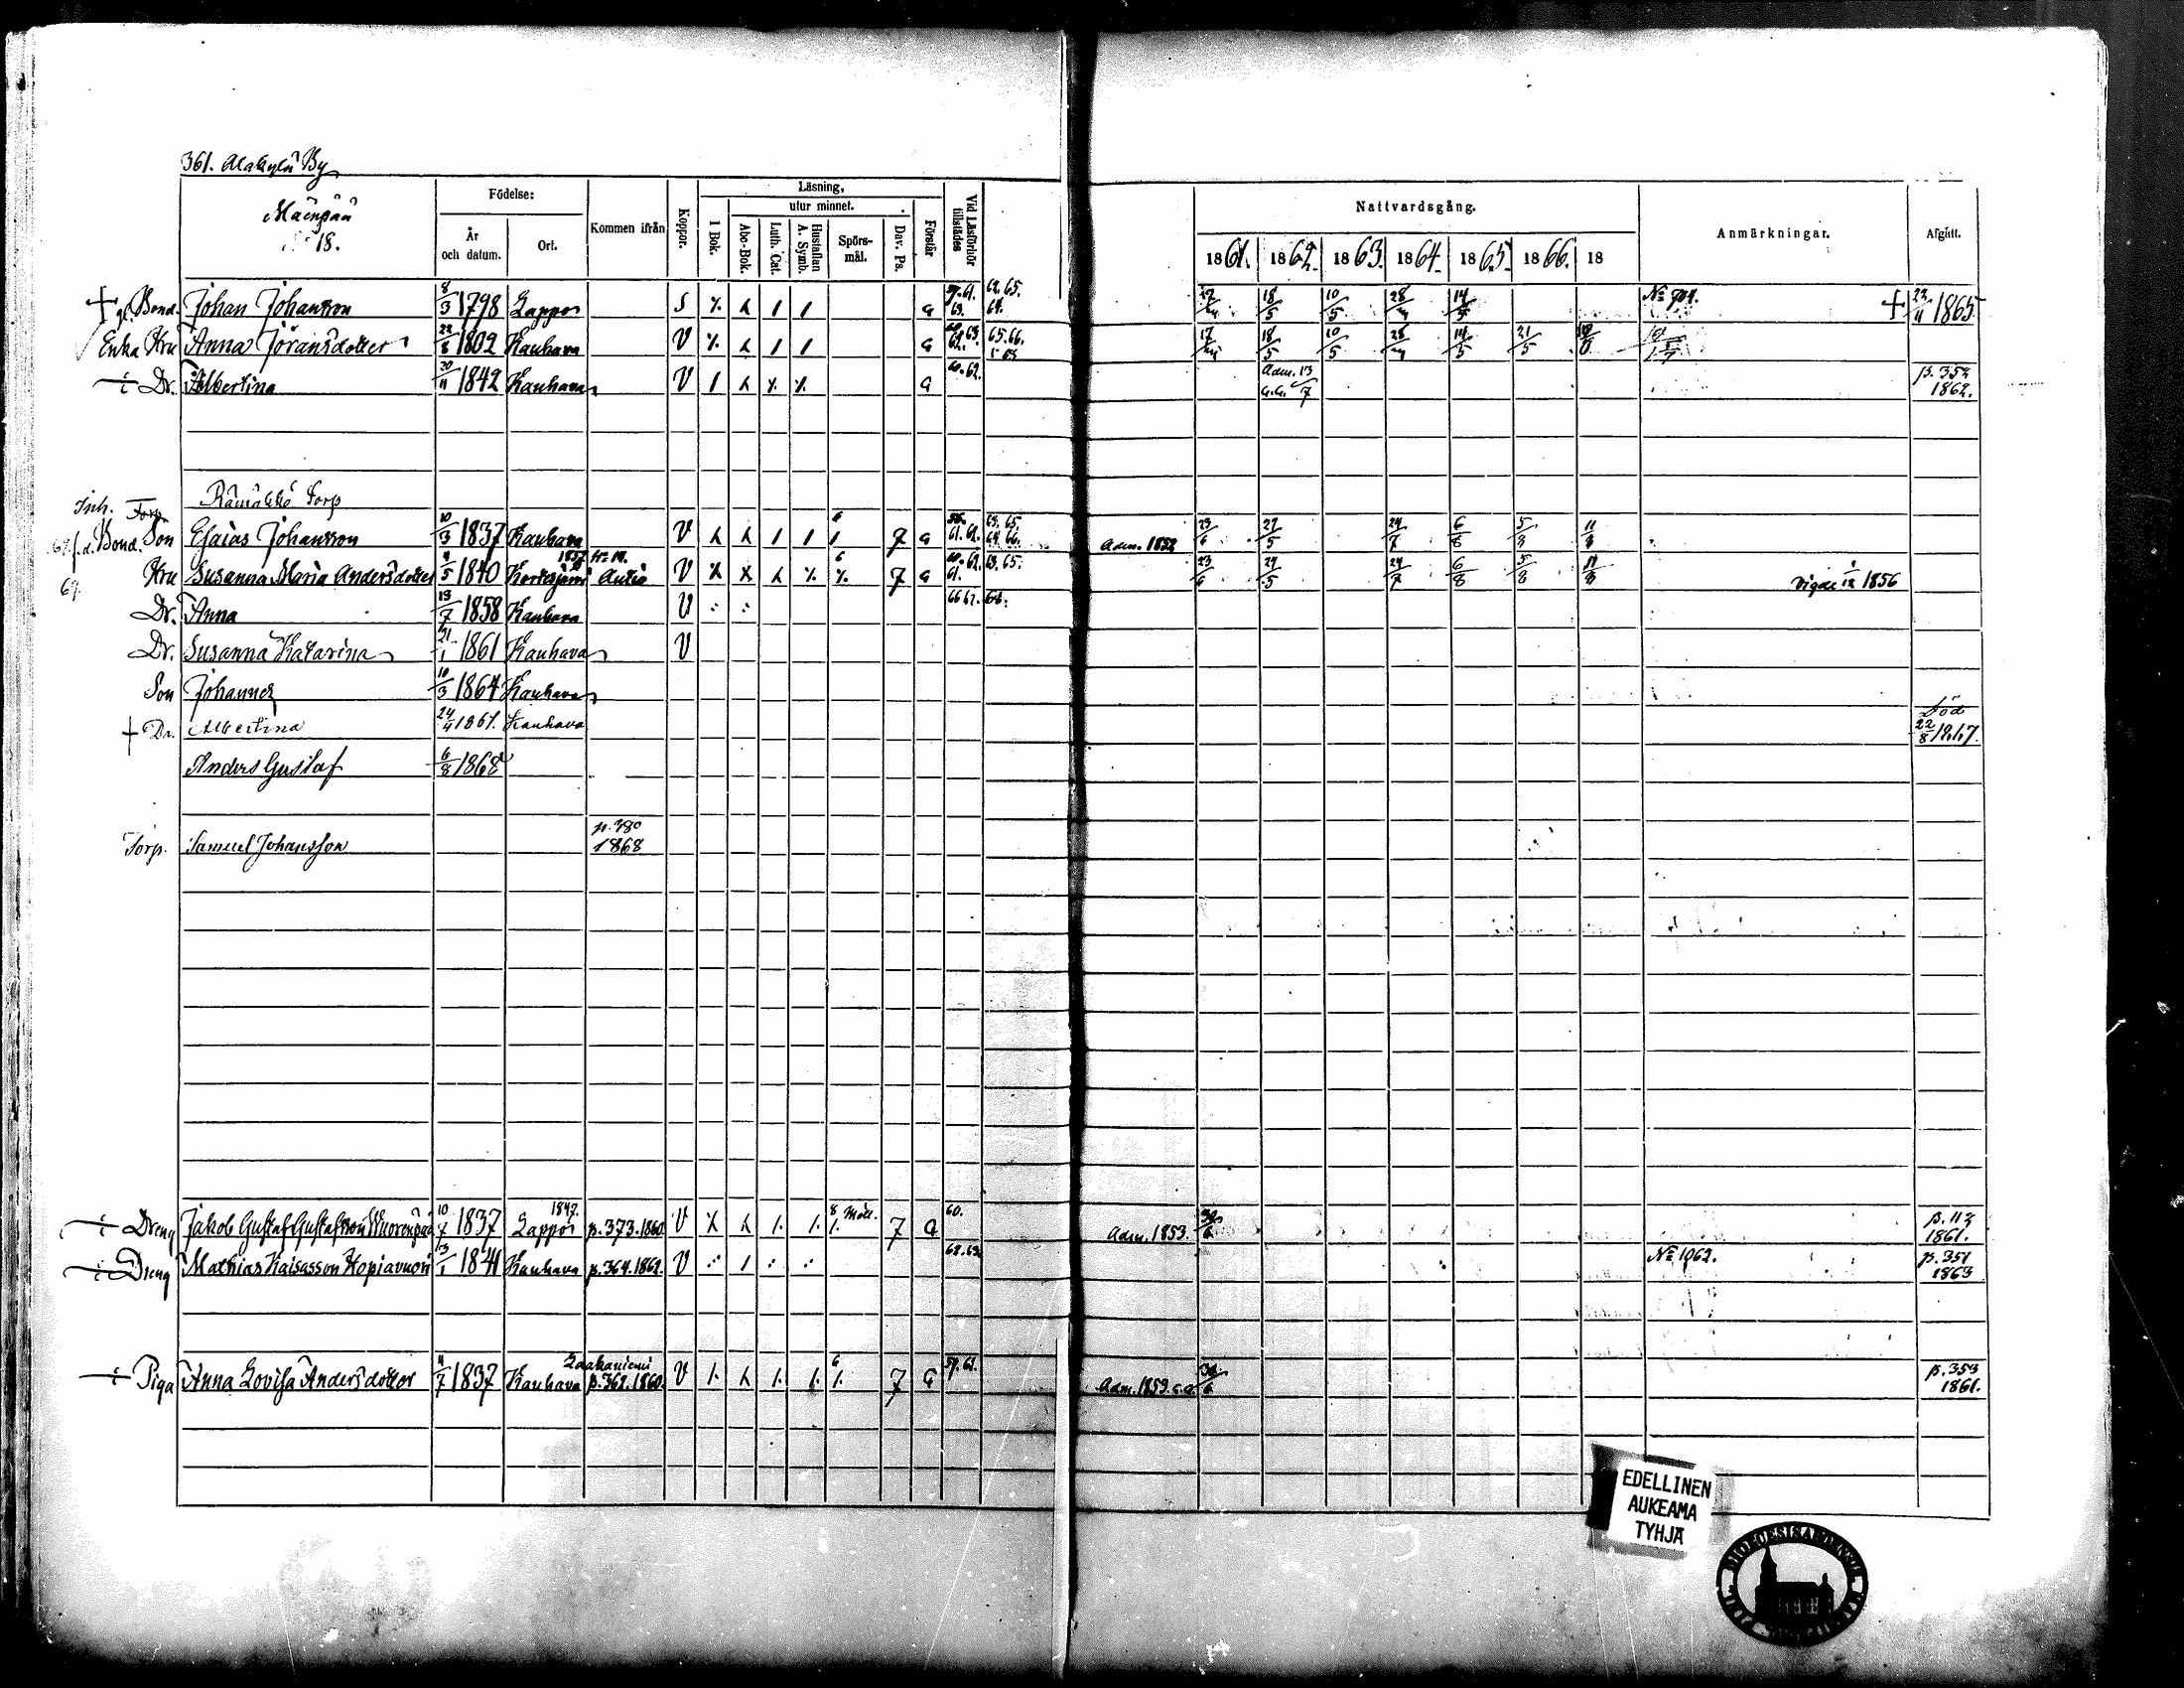 361. Alakylä By
Mäenpää
18.
Födelse:
År och datum.
Ort.
Kommen ifrån
Koppor.
Läsning,
utur minnet.
I Bok.
Abc-Bok.
Luth. Cat.
Hustaflan A. Symb.
Spörs-mål.
Dav. Ps.
Förstår
Vid Läsförhör tillstädes
Nattvardsgång.
1861. 1862. 1863. 1864. 1865. 1866. 18
Anmärkningar.
Afgått.
+ gl. Bond. Johan Johansson 8/3 1798 Lappo S 17/4 18/5 10/5 28/4 14/5 + 23/11 1865
Enka Hru Anna Jöransdotter 22/8 1802 Kauhava V 17/4 18/5 10/5 28/4 14/5 21/5
Dr. Albertina 20/11 1842 Kauhava V a 60.62. Adm. 13/7 p. 353 1862.
Torp
Inh. Torp.
67. f.d. Bond. Son Esaias Johansson 10/3 1837 Kauhava V 7 a 61.62. Adm. 1852 23/6 24/7 6/8 5/8 11/8
67. Hru Susanna Maria Andersdotter 4/5 1840 Kortesjärvi Antia V 7 a 61. 23/6 24/5 24/7 6/8 5/8 11/8 Vigde 1/12 1856
Dr. Anna 13/7 1858 Kauhava V 66 67.
Dr. Susanna Katarina 21/1 1861 Kauhava V
Son Johannes 10/3 1864 Kauhava
+ Dr. Albertina 24/4 1867. Kauhava Död 22/8 1867.
Anders Gustaf 6/8 1868
Torp. Samuel Johansson p. 380 1868
Dreng Jakob Gustaf Gustafsson Wuorenpää 10/7 1837 Lappo 1842. p. 373. 1860. V 7 a 60. Adm. 1853. 30/6 p. 113 1861.
Dreng Mathias Kaisasson Kopiavuori 13/1 1841 Kauhava p. 364. 1862. V 62.63. No 1062. p. 351 1863
Piga Anna Lovisa Andersdotter 4/7 1837 Kauhava Laakaniemi p. 362. 1860. V 7 a 59.61. Adm. 1853. 30/6 p. 353 1861.
EDELLINEN
AUKEAMA
TYHJÄ